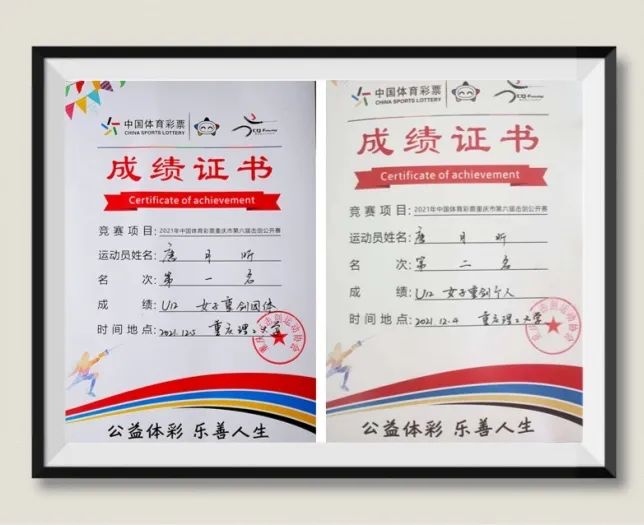 中国体育彩票
CHINA SPORTS LOTTERY
成绩证书
Certificate of achievement
竞赛项目: 2021年中国体育彩票重庆市第六届击剑公开赛
运动员姓名: 唐月昕
名次: 第一名
成绩: U12 女子重剑团体
时间地点: 2021.12.5 重庆理工大学
公益体彩 乐善人生
中国体育彩票
CHINA SPORTS LOTTERY
成绩证书
Certificate of achievement
竞赛项目: 2021年中国体育彩票重庆市第六届击剑公开赛
运动员姓名: 唐月昕
名次: 第二名
成绩: U12 女子重剑个人
时间地点: 2021.12.4 重庆理工大学
公益体彩 乐善人生